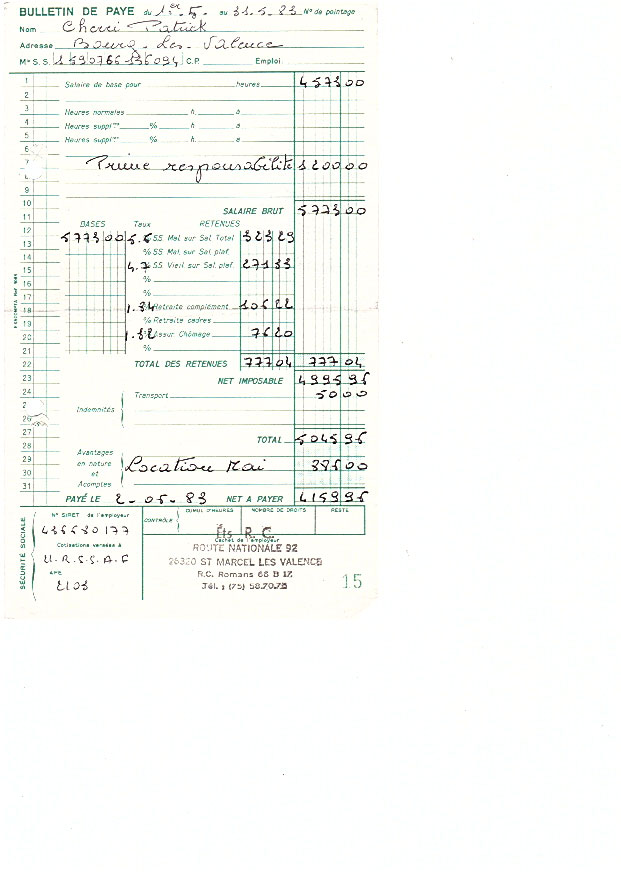 BULLETIN DE PAYE du 1er. 5. au 31.5.83 N° de pointage
Nom Cherri Patrick
Adresse Bourg-Les-Valence
Mle S.S. C.P. Emploi
1 Salaire de base pour heures 4573 00
2
3 Heures normales h. à
4 Heures supplres % h. à
5 Heures supplres % h. à
6
7 Prime responsabilité 1200 00
8
9
10 SALAIRE BRUT 5773 00
11 BASES Taux RETENUES
12 5773 00 SS Mal. sur Sal. Total
13 % SS Mal. sur Sal. plaf.
14 4.7 % SS Vieil. sur Sal. plaf. 271 33
15 %
17 %
18 1.84 Retraite complément. 106 22
19 % Retraite cadres
20 1.32 % Assur. Chômage 76 20
21 %
22 TOTAL DES RETENUES 777 04 777 04
23 NET IMPOSABLE 4995 96
24 Transport 50 00
Indemnités
26
27 TOTAL 5045 96
28
29 Avantages en nature et Acomptes
30 Location Mai
31
PAYÉ LE 2-05-83 NET A PAYER
SÉCURITÉ SOCIALE
N° SIRET de l'employeur
Cotisations versées à
U.R.S.S.A.F
APE
2103
CONTRÔLE
CUMUL D'HEURES NOMBRE DE DROITS RESTE
Éts R. C.
Cachet de l'employeur
ROUTE NATIONALE 92
26320 ST MARCEL LES VALENCE
R.C. Romans 66 B 17
Tél. : (75) 58.70.75
15